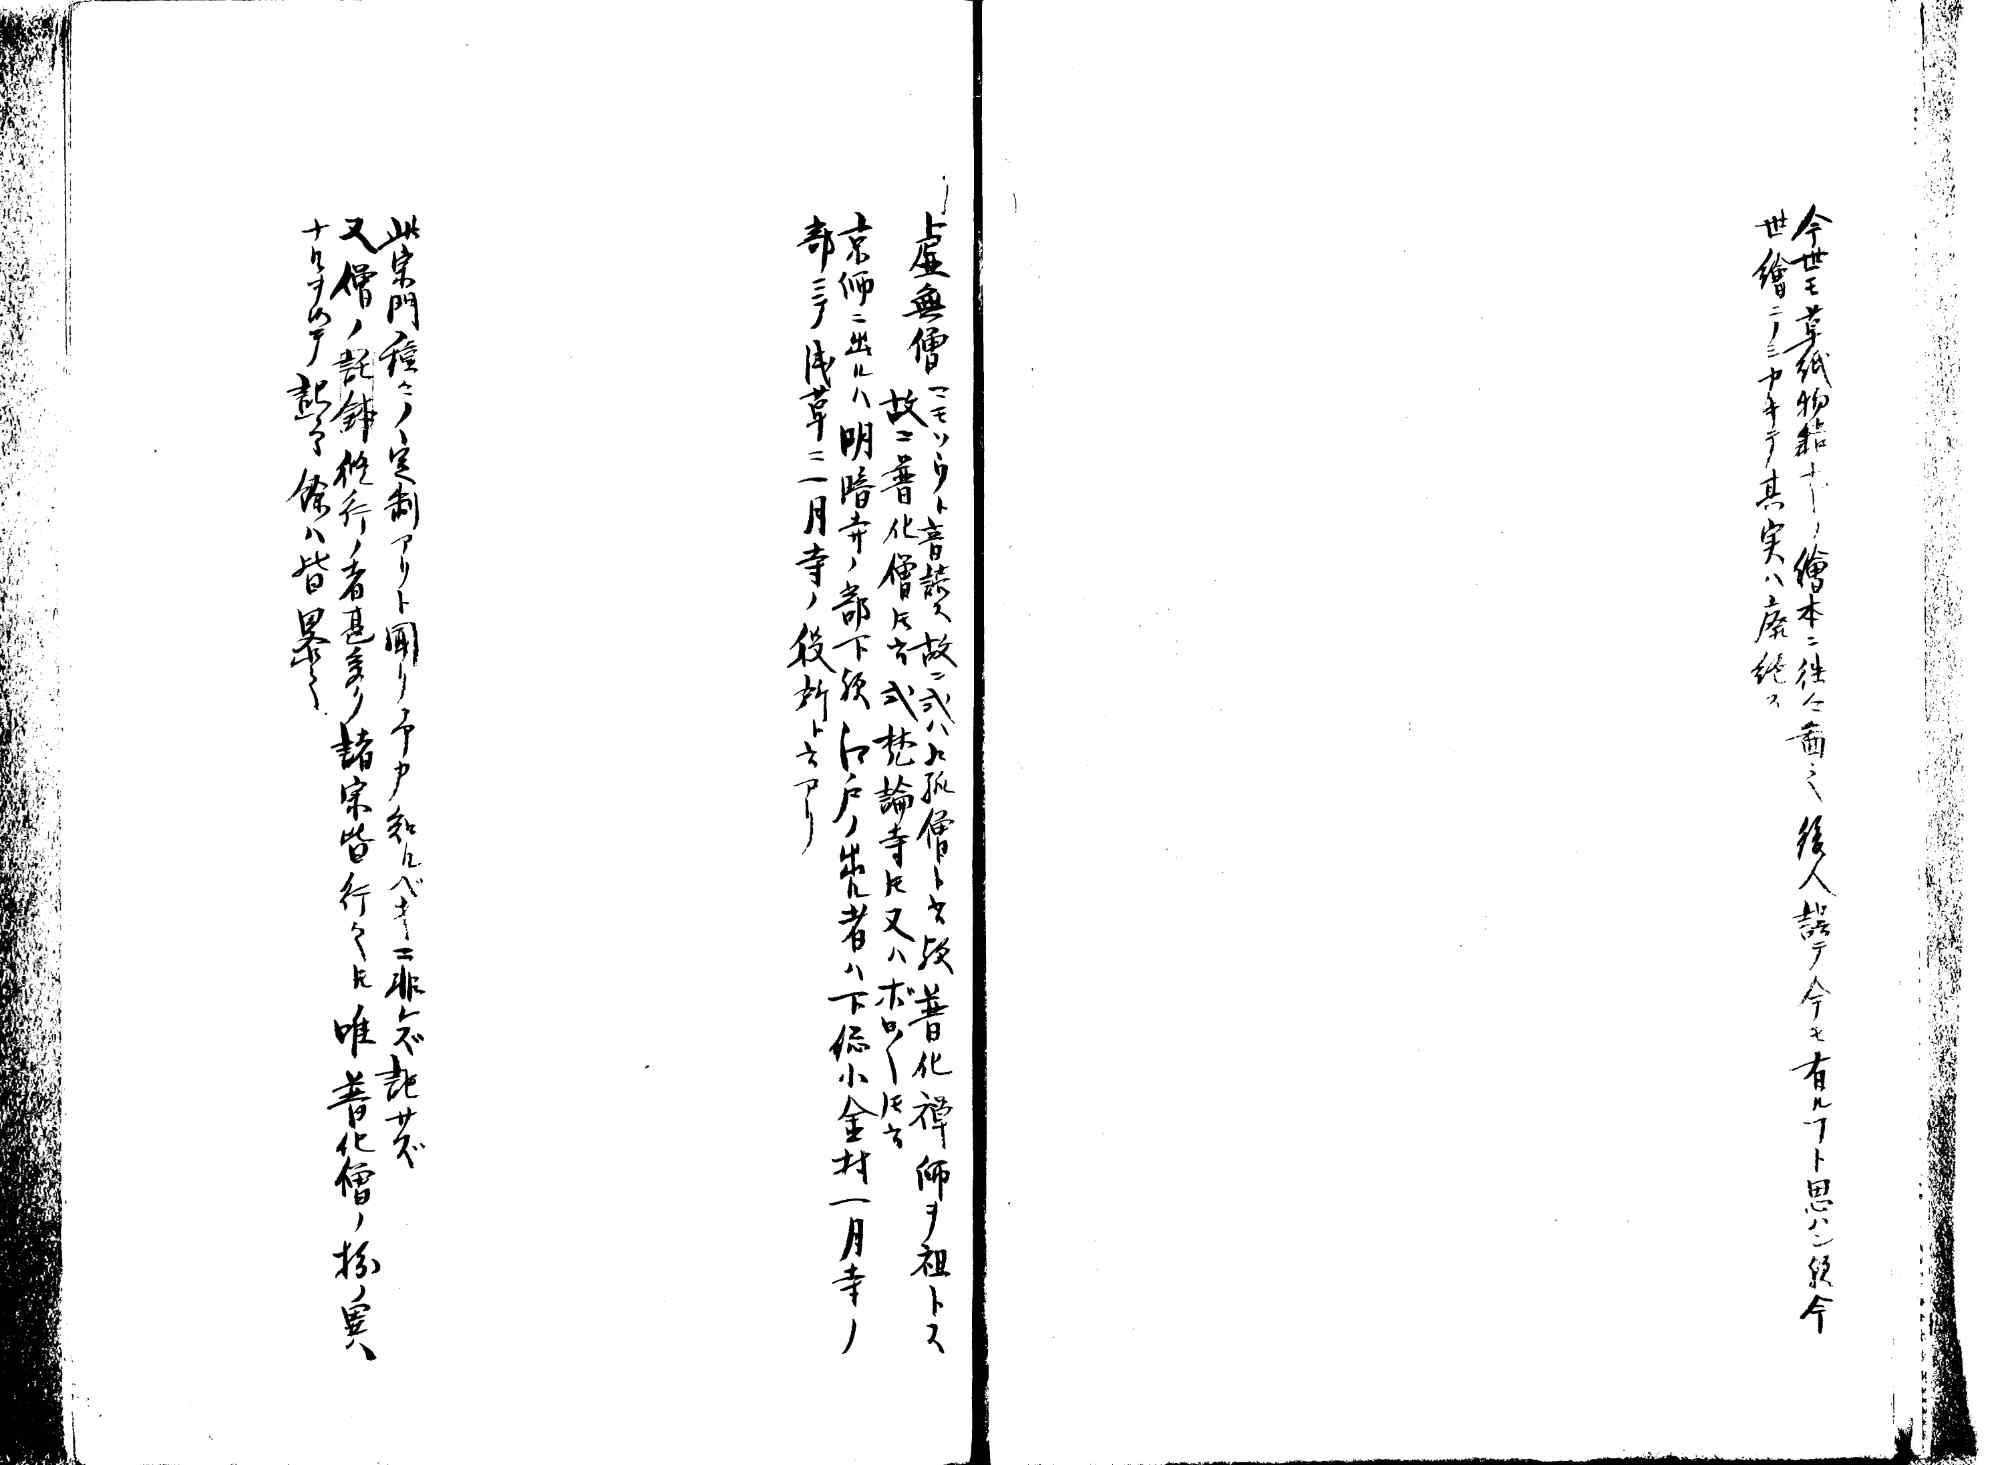 今世モ草紙物語ナドノ繪本ニ往々畵之後人誤テ今モ有ルヿト思ハン歟今
世繪ニノミカキテ其実ハ廃絶ス
虚無僧 コモソウト音讀ス故ニ或ハ古孤僧トモ云歟普化禅師ヲ祖トス
故ニ普化僧トモ云或梵論寺トモ又ハボロ〱トモ云
京師ニ出ルハ明暗寺ノ部下歟江戸ノ出ル者ハ下総小金村一月寺ノ
部ニテ浅草ニ一月寺ノ役所ト云アリ
此宗門種々ノ定制アリト聞リ予カ知ルベキニ非レズ記サズ
又僧ノ託鉢修行ノ者甚多シ諸宗皆行之トモ唯普化僧ノ扮ノ異
ナルヲ以テ記之餘ハ皆畧之